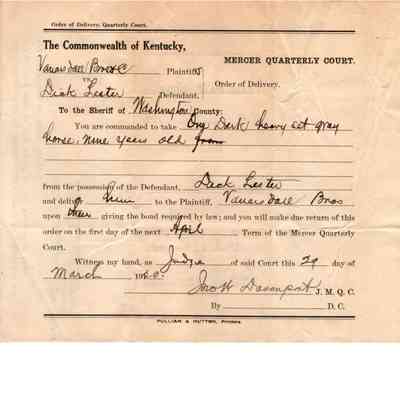 Order of Delivery, Quarterly Court.
The Commonwealth of Kentucky,
MERCER QUARTERLY COURT.
Vanarsdall Bros & C Plaintiffs
vs
Order of Delivery.
Dick Lester Defendant,
To the Sheriff of Washington County:
You are commanded to take One Dark heavy set gray
horse, nine years old from
from the possession of the Defendant, Dick Lester
and deliver him to the Plaintiff, Vanarsdall Bros
upon their giving the bond required by law; and you will make due return of this
order on the first day of the next April Term of the Mercer Quarterly
Court.
Witness my hand, as Judge of said Court this 29 day of
March
Jno H Davenport J. M. Q. C.
By D. C.